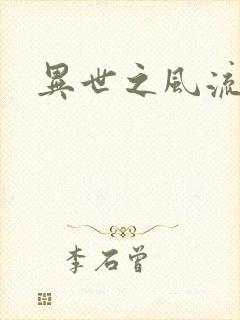 異世之風流
李石曾